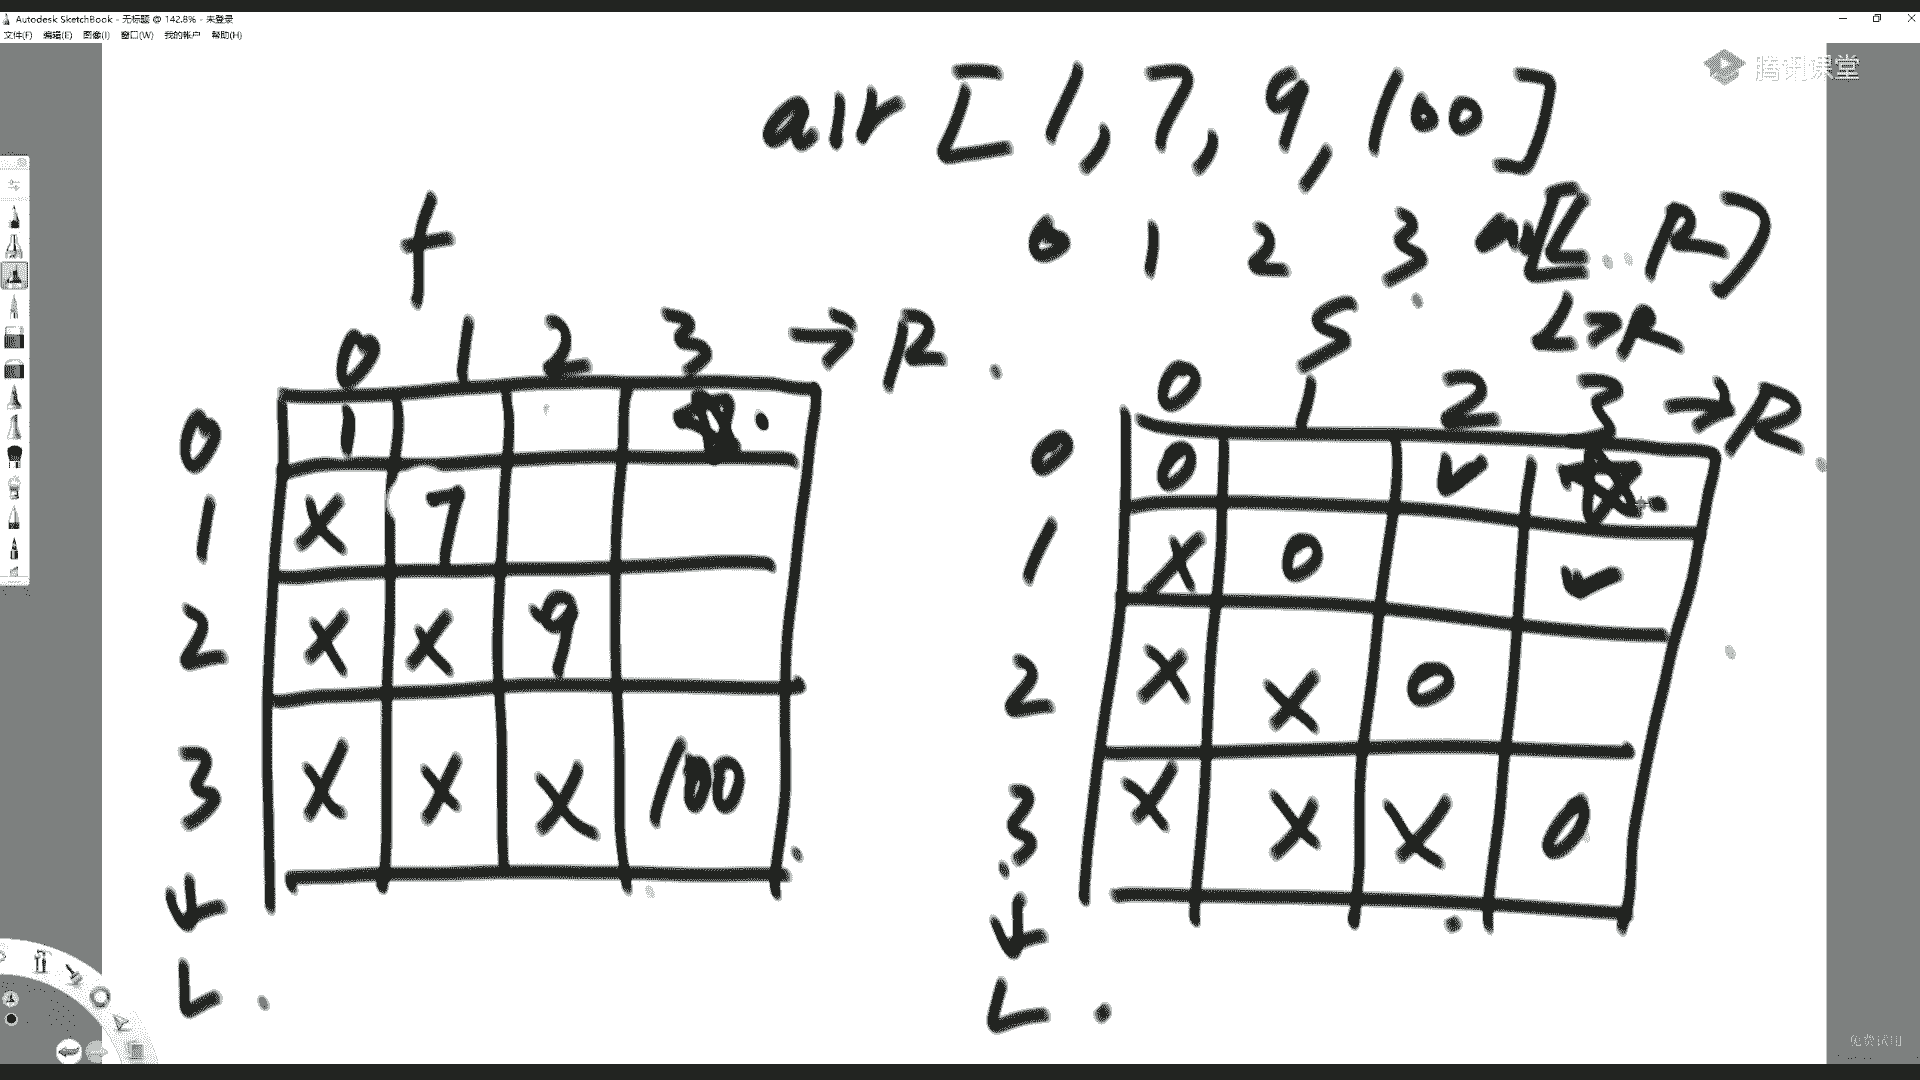 Autodesk SketchBook - 无标题 @ 142.8% - 未登录
文件(F) 编辑(E) 图像(I) 窗口(W) 我的帐户 帮助(H)
腾讯课堂
arr [1, 7, 9, 100]
0 1 2 3
R]
L>R
f
0 1 2 3 → R
0 1
1 X 7
2 X X 9
3 X X X 100
L
S
0 1 2 3 → R
0 0
1 X 0
2 X X 0
3 X X X 0
L
免费试用